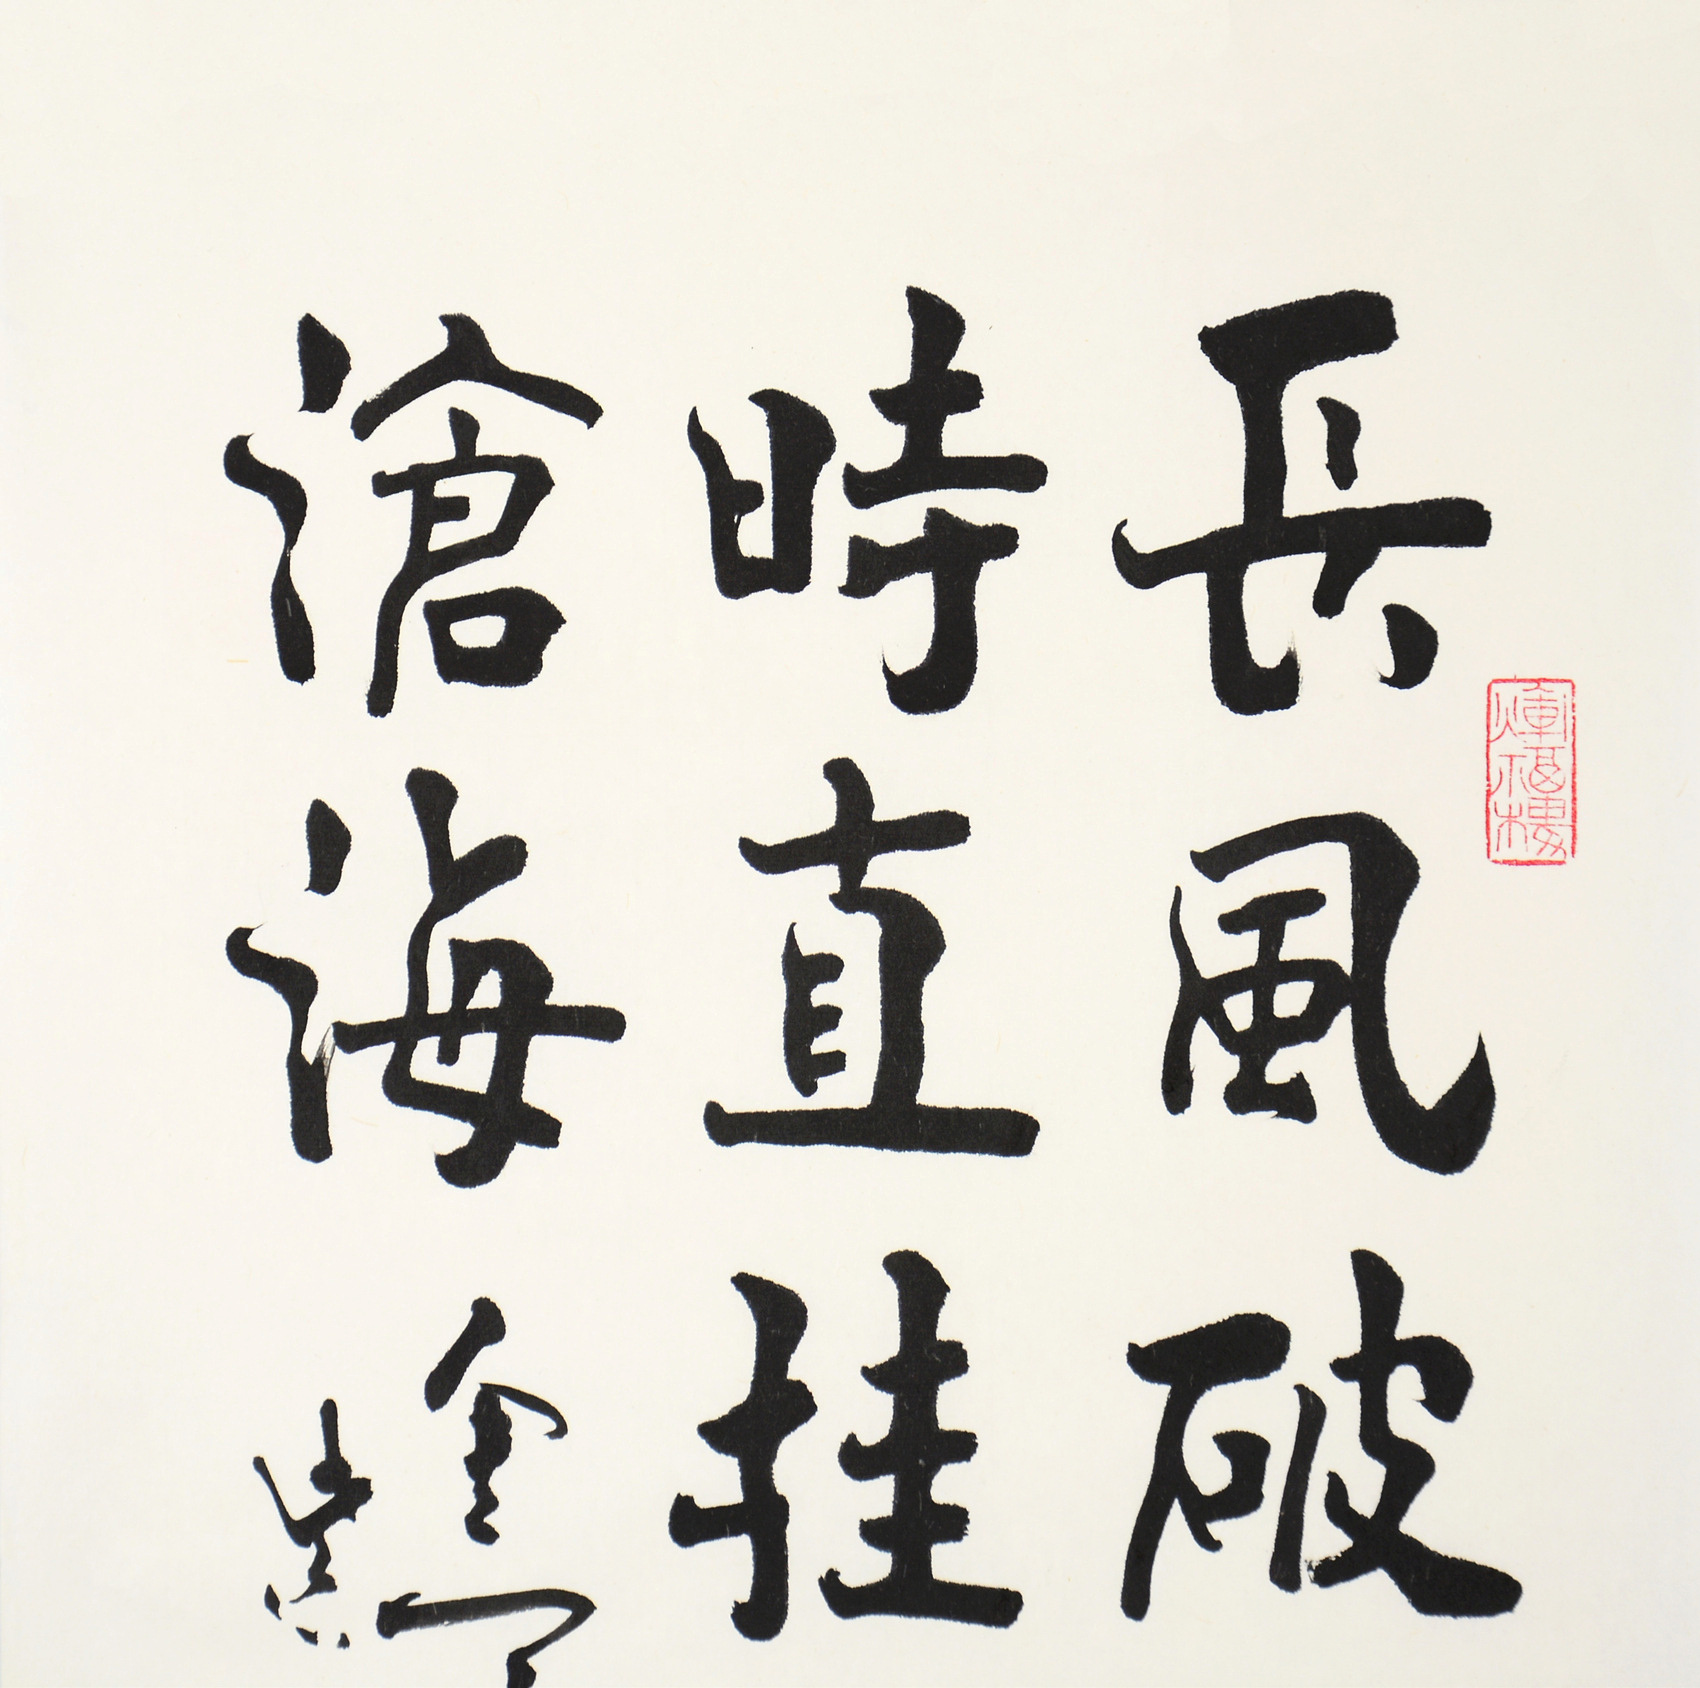 長風破
時直挂
滄海
煇福樓